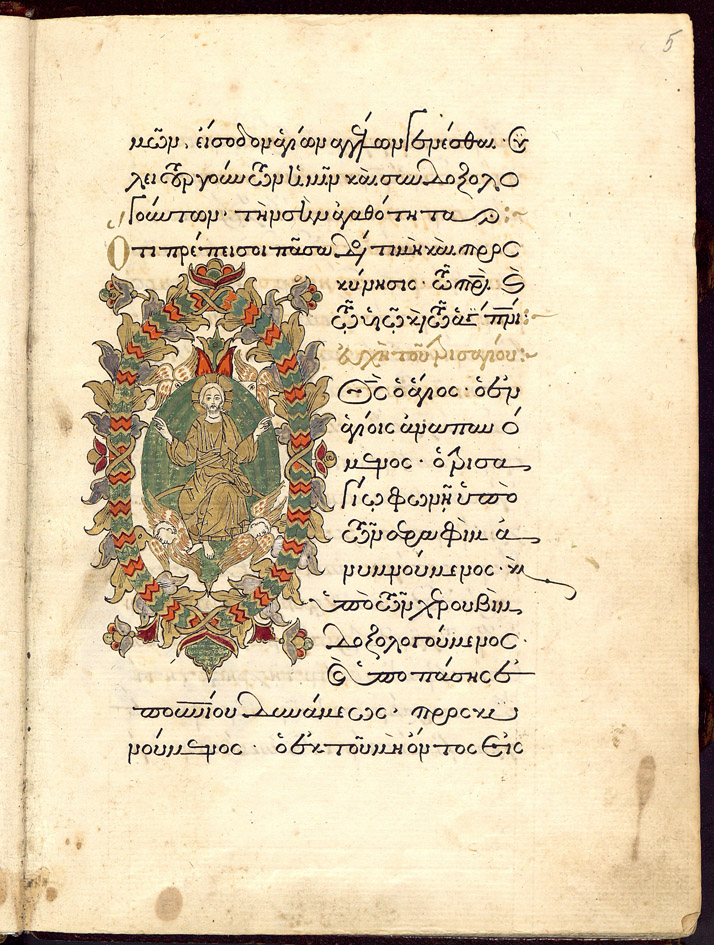 μῶν, εἴσοδον ἁγίων ἀγγέλων γενέσθαι. συλ
λειτουργούντων ἡμῖν καὶ συνδοξολο
γούντων· τὴν σὴν ἀγαθότητα :~
Ὅτι πρέπει σοι πᾶσα δόξα τιμὴ καὶ προσ
κύνησις· τῷ πρι̅ κ(αὶ)
τῷ υἱῷ κ(αὶ) τῷ ἁγίῳ πνι̅ :~
εὐχὴ τοῦ τρισαγίου :~
Ὁ Θς̅ ὁ ἅγιος· ὁ ἐν
ἁγίοις ἀναπαυό
μενος· ὁ τρισα
γίῳ φωνῇ ὑπὸ
τῶν σεραφὶμ ἀ
νυμνούμενος· κ(αὶ)
ὑπὸ τῶν χερουβὶμ
δοξολογούμενος·
κ(αὶ) ὑπὸ πάσης ἐ
πουνίου δυνάμεως· προσκυ
νούμενος· ὁ ἐκ τοῦ μὴ ὄντος εἰς